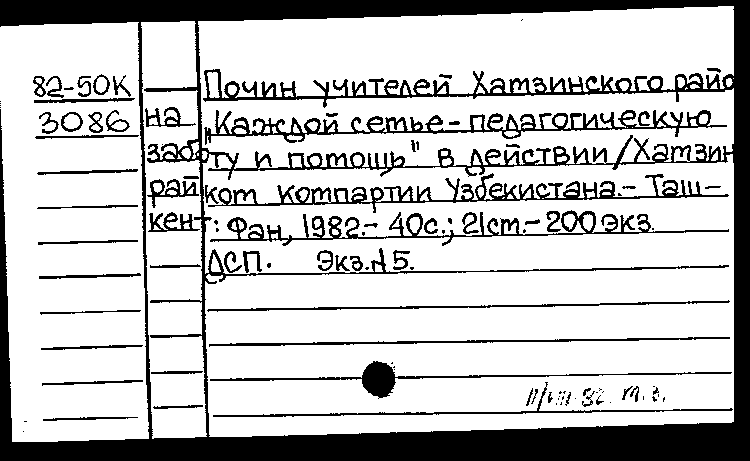 82-50К Почин учителей Хатзинского райо
3086 на „Каждой сетье-педагогическую
заботу и потощь" в действии/Хатзин
райкот котпартии Узбекистана.- Таш-
кент: Фан, 1982.- 40с.; 21ст.- 200 экз.
ДСП. Экз.№5.